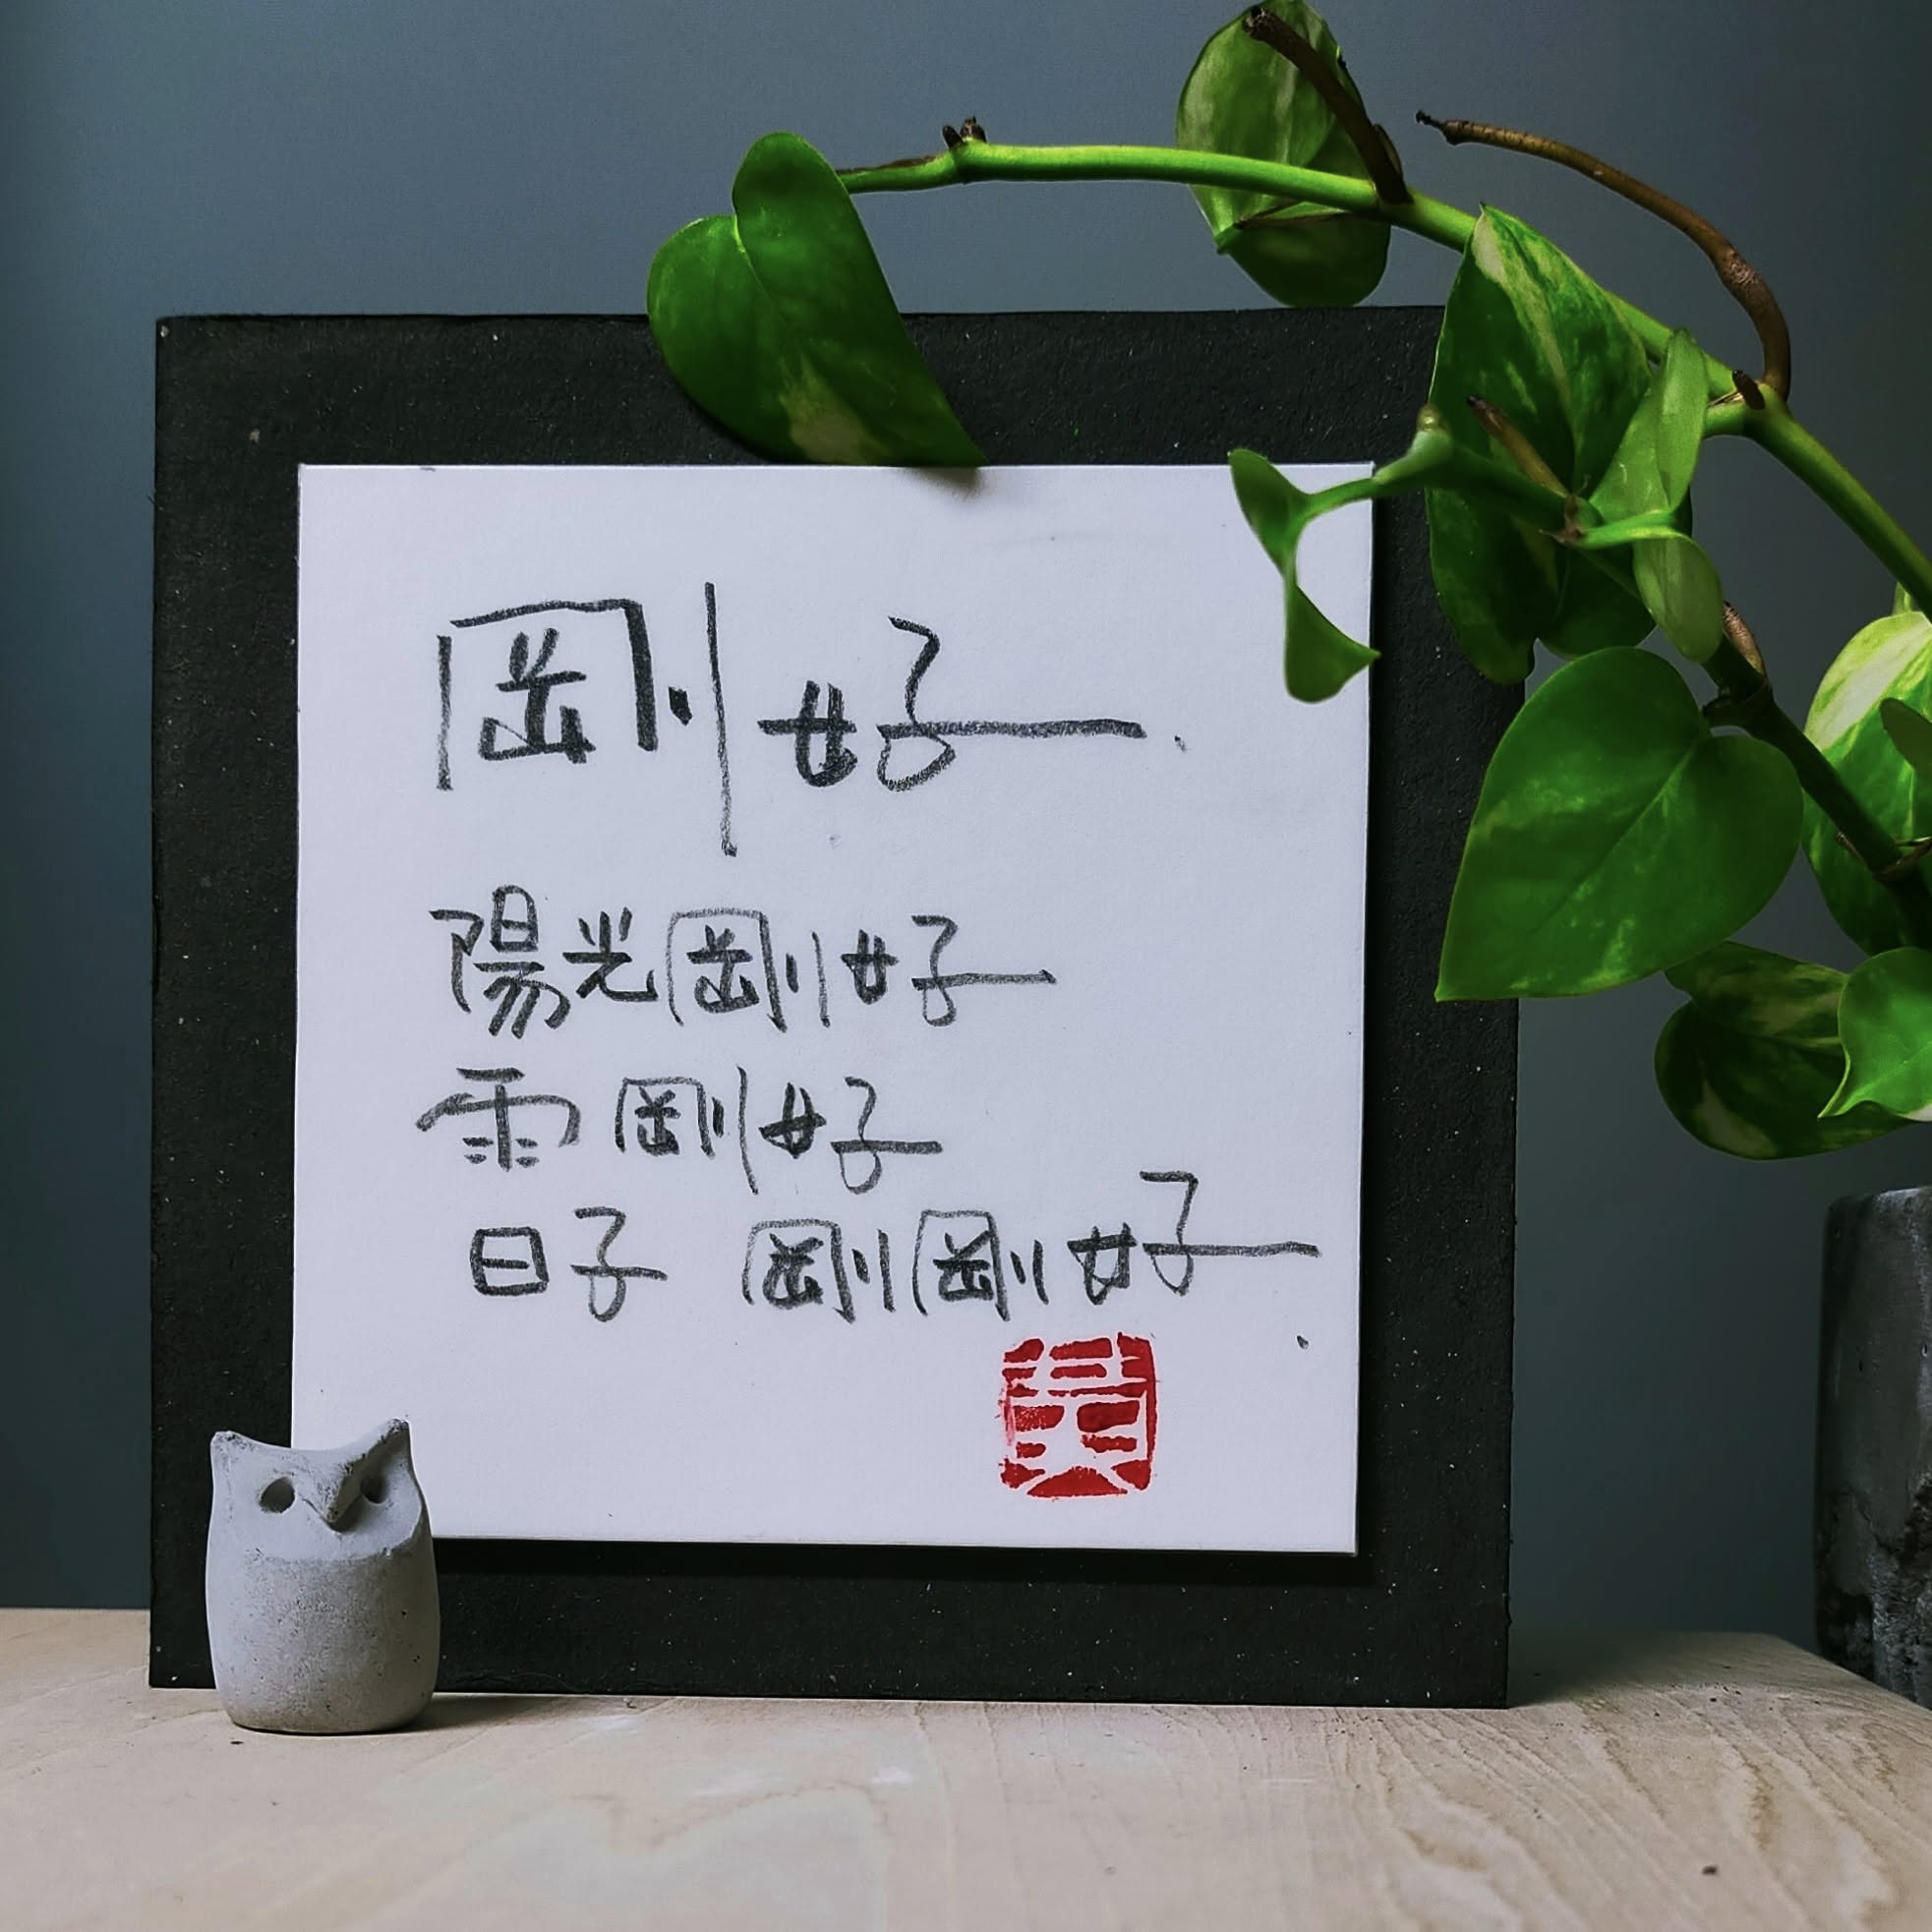 剛好
陽光剛好
雨剛好
日子 剛剛好